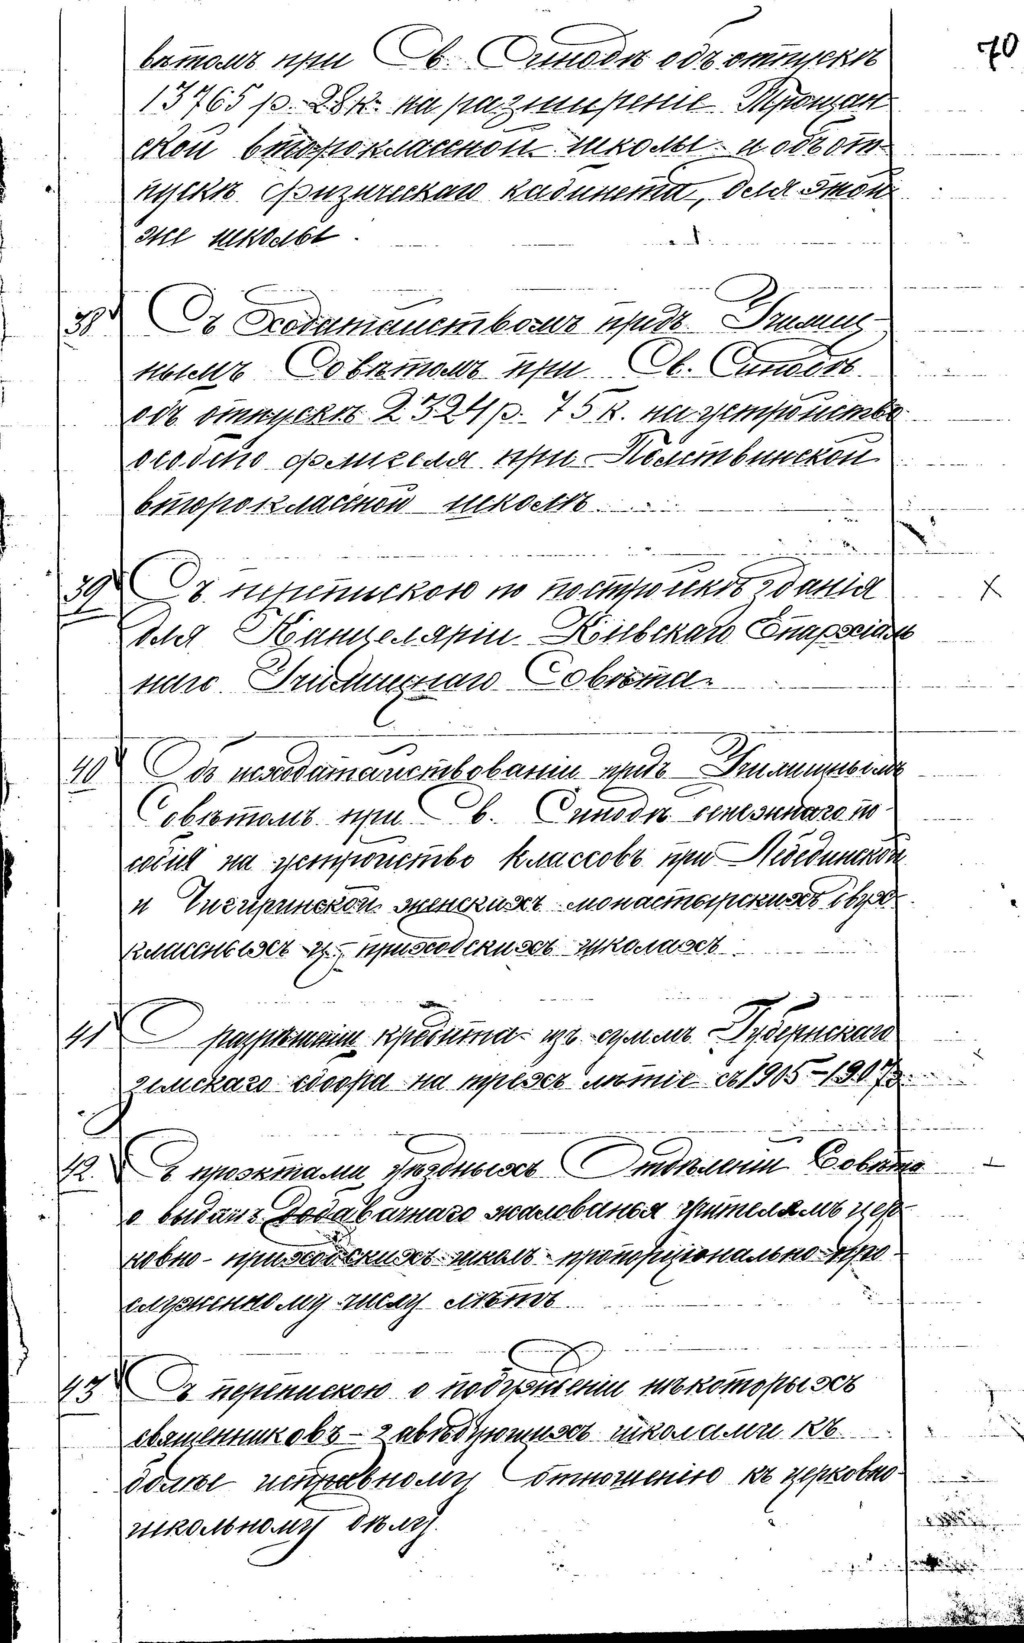 70
вѣтомъ при Св. Синодѣ объ отпускѣ
13765 р. 28 к. на разширеніе Трощан
ской второклассной школы и объ от-
пускѣ физическаго кабинета, для этой
же школы.
38 Съ Ходатайствомъ предъ Училищ-
нымъ Совѣтомъ при Св. Синодѣ
объ отпускѣ 2324 р. 75 к. на устройство
особаго флигеля при Полствинской
второклассной школѣ
39 Съ перепискою по постройкѣ зданія
для Канцеляріи Кіевскаго Епархіаль
наго Училищнаго Совѣта.
40 Объ исходатайствованіи предъ Училищнымъ
Совѣтомъ при Св. Синодѣ денежнаго по-
собія на устройство классовъ при Лебединской
и Чигиринской женскихъ монастырскихъ двух
классныхъ ц. приходскихъ школахъ
41 О разрѣшеніи кредита изъ суммъ Губернскаго
земскаго сбора на трехъ лѣтіе съ 1905-1907 г.
42. Съ проэктами Уѣздныхъ Отдѣленій Совѣта
о выдачѣ добавочнаго жалованья учителямъ цер-
ковно-приходскихъ школъ пропорціонально про-
служенному числу лѣтъ
43 Съ перепискою о побужденіи нѣкоторыхъ
священниковъ-завѣдующихъ школами къ
болѣе исправному отношенію къ церковно-
школьному дѣлу.